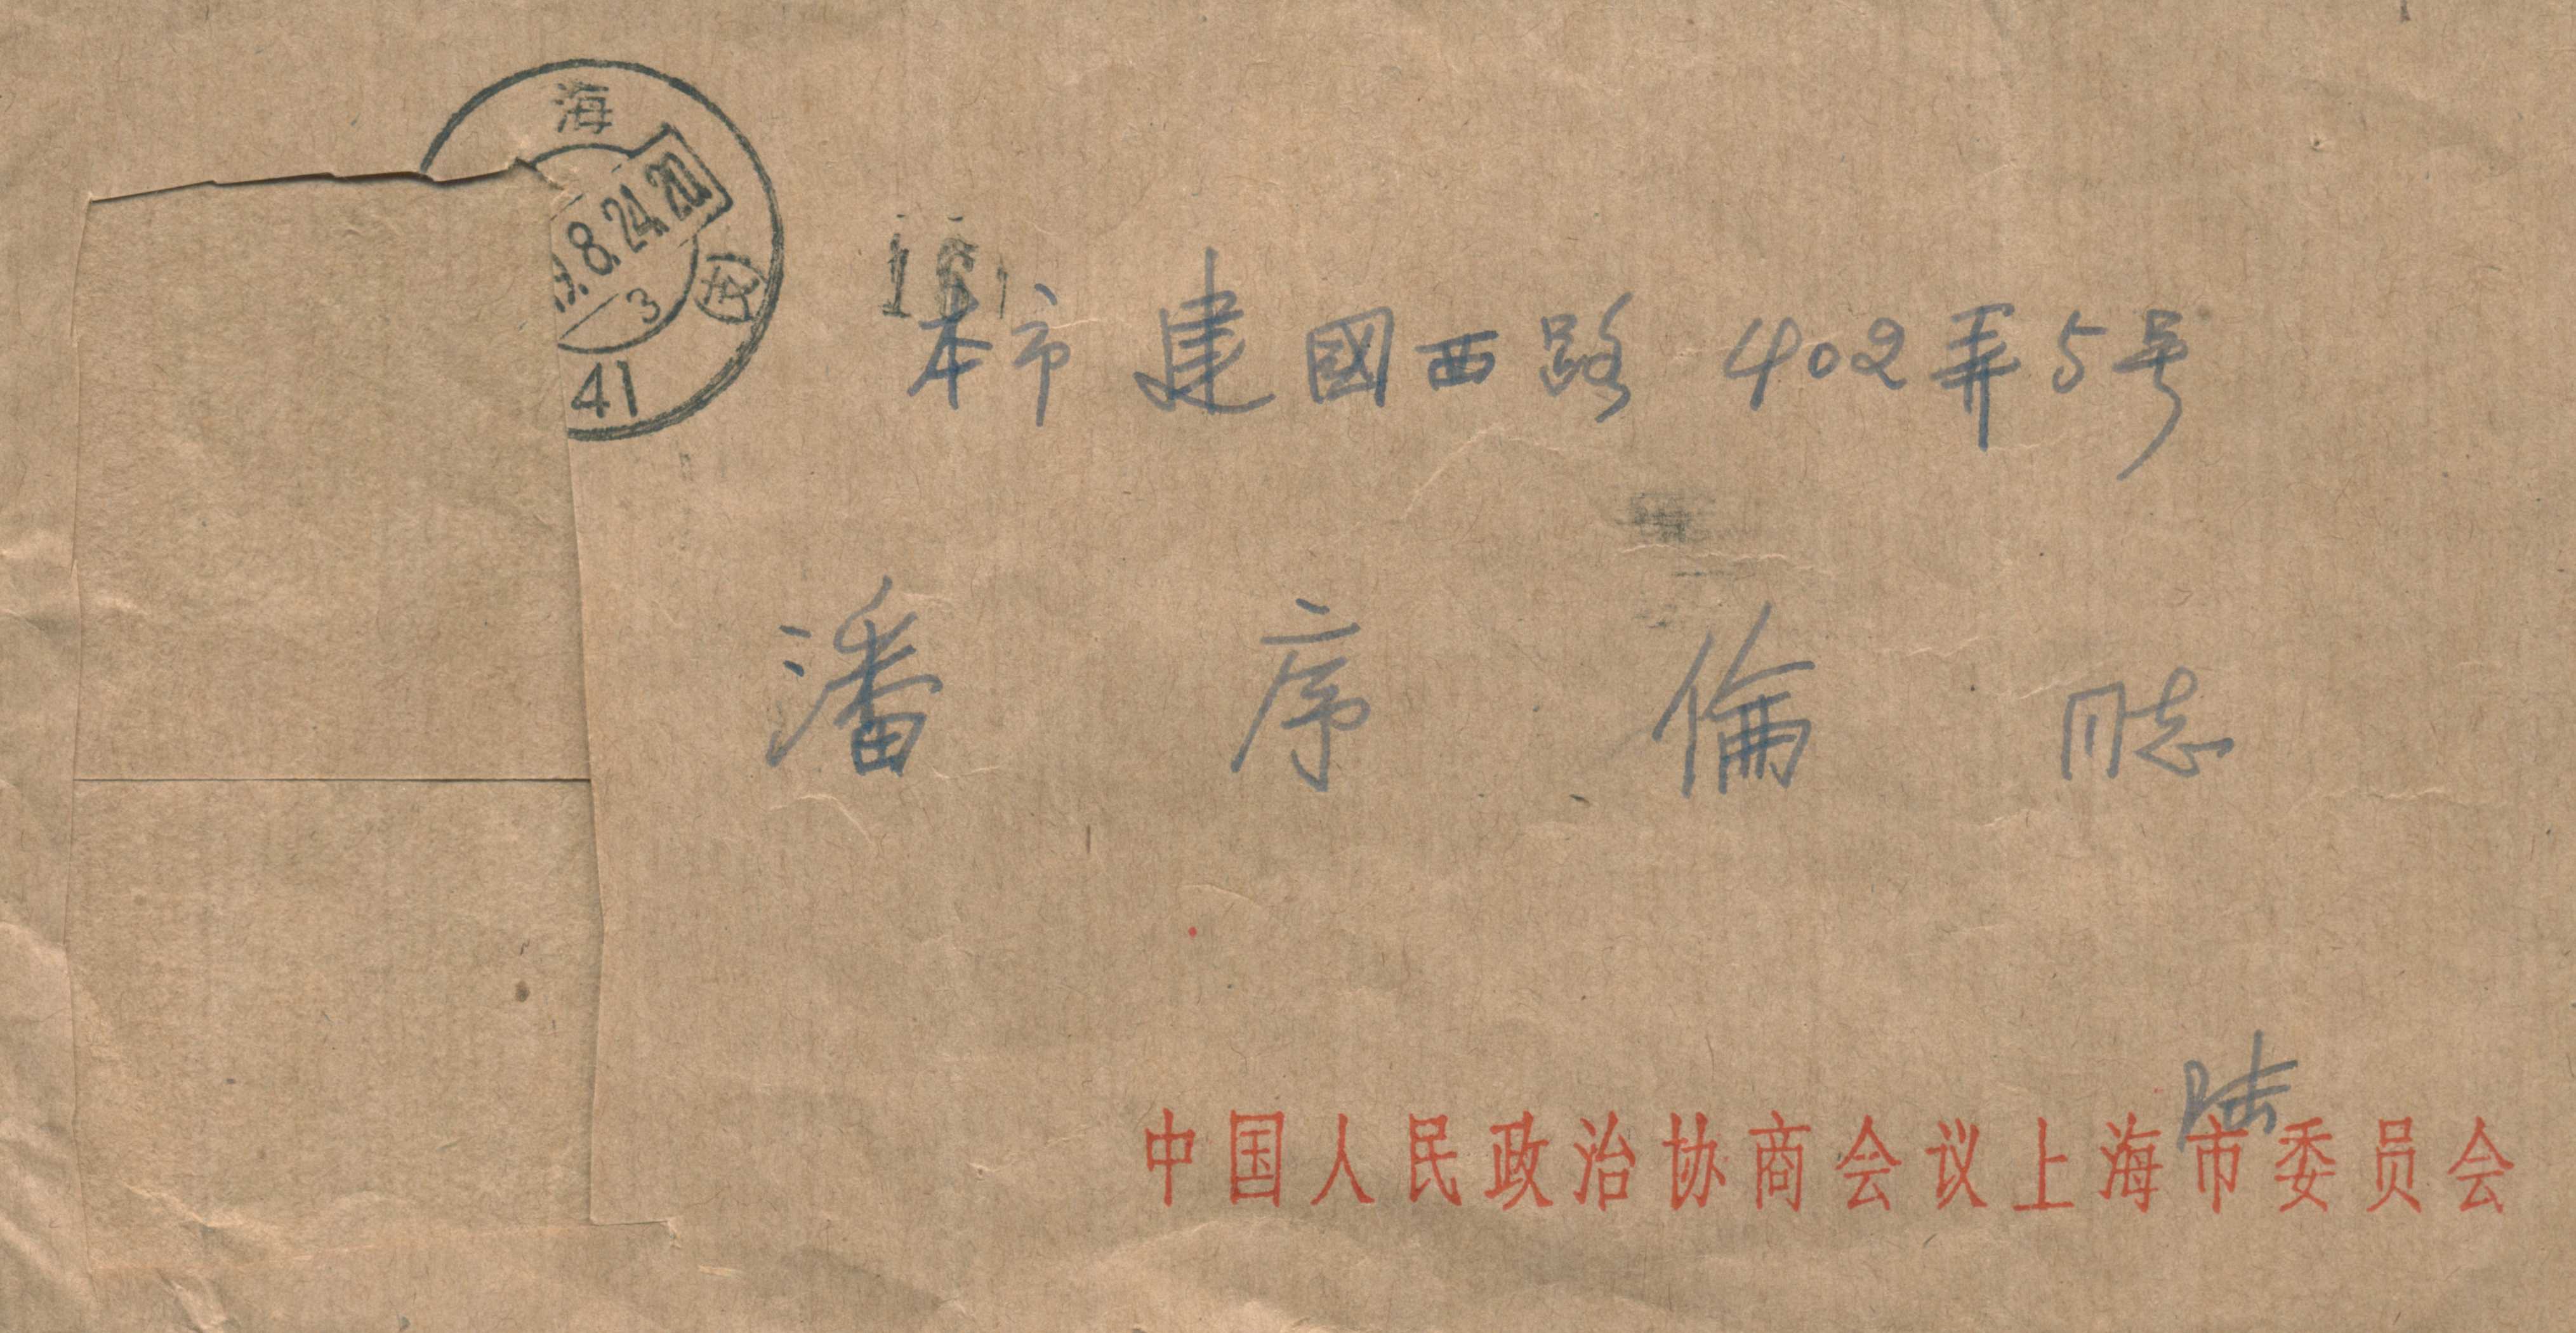 海
9.8.24.20
3
41
16
本市建國西路 402弄5号
潘序倫同志
陆
中国人民政治协商会议上海市委员会